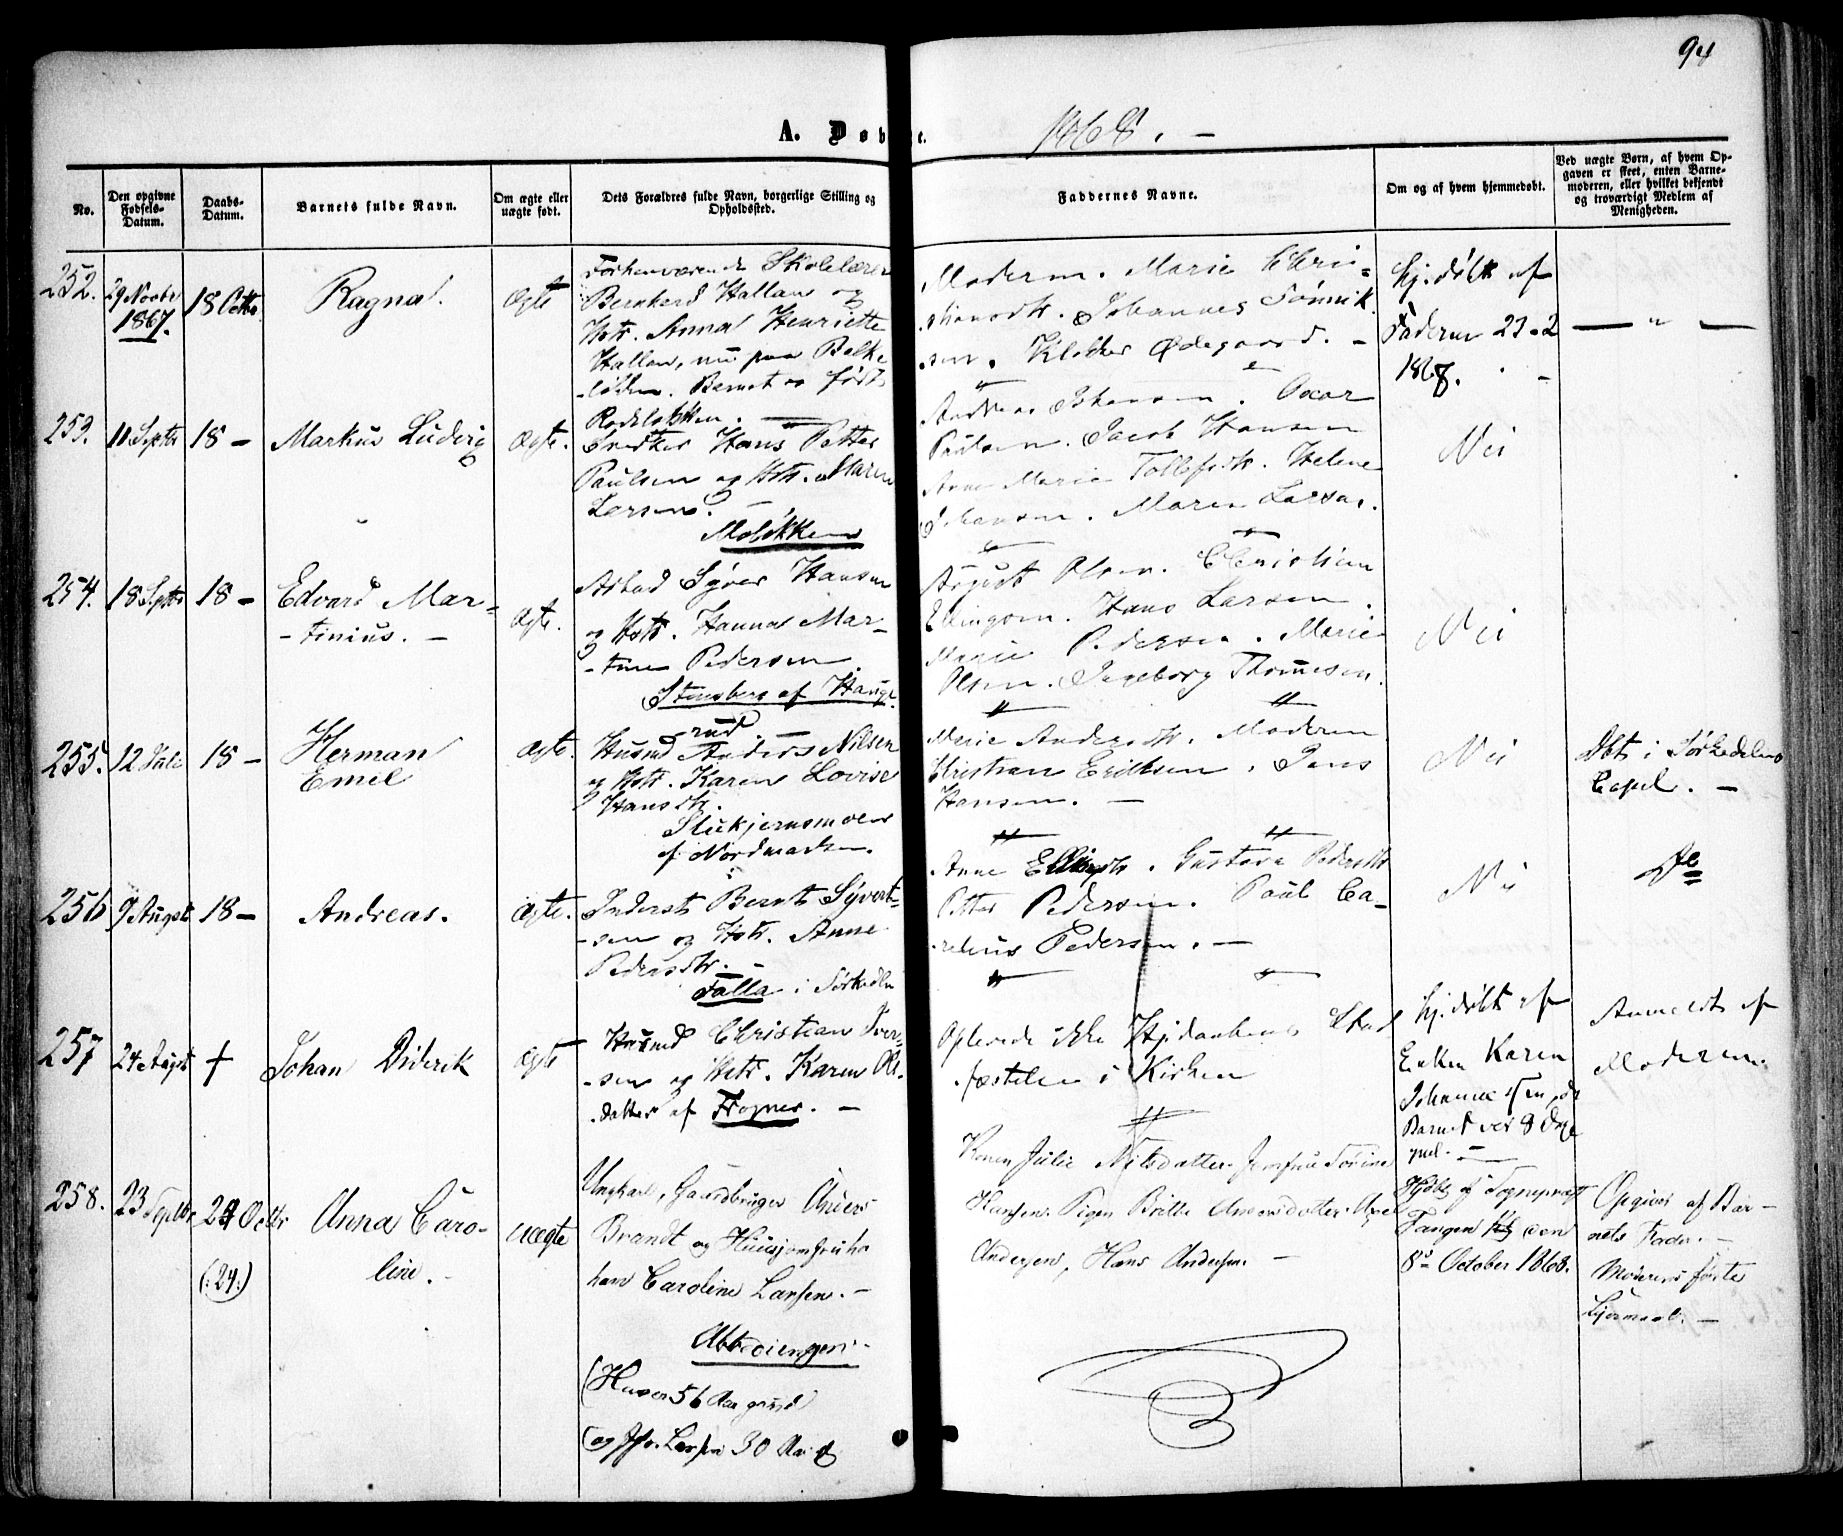 94
A. Døb e.
1868. -
No.
Den opgivne Fødsels-Datum.
Daabs-Datum.
Barnets fulde Navn.
Om ægte eller uægte født.
Dets Forældres fulde Navn, borgerlige Stilling og Opholdssted.
Faddernes Navne.
Om og af hvem hjemmedøbt.
Ved uægte Børn, af hvem Opgaven er skeet, enten Barnemoderen, eller hvilket bekjendt og troværdigt Medlem af Menigheden.
252.
29 Novbr
1867.
18 Octbr
Ragna.
Ægte
Forhenværende Skolelærer
Bernhard Hallan og
Hstr. Anna Henriette
Hallan, nu paa Bakke
-løkken. Barnet er født
Rodeløkken. -
Moderen. Marie Chri-
-stiansdtr. Johannes Tönnik
sen. Klokker Ødegaard. -
hj. døbt af
Faderen 23-2
1868. -
— " —
253.
11 Septbr
18 -
Markus Ludvig
Ægte.
Hans Petter
Paulsen og Hstr. Maren
Larsen. -
Andreas Johansen. Oscar
Paulsen. Jacob Hansen
Anne Marie Tollefsdtr. Helene
Johansen. Maren Larsen.
Nei
254.
18 Septbr
18 -
Edvard Mar-
-tinius. -
Ægte.
Arbeid Syver Hansen
og Hstr. Hanna Mar-
-tine Pedersen.
Stensberg af Hauge-
rud
August Olsen. Christian
Ellingsen. Hans Larsen.
Marie Pedersen. Marie
Olsen. Ingeborg Thomesen.
Nei
255.
12 Juli
18 -
Herman
Emil
Ægte.
Husmd Anders Nilsen
og Hstr. Karen Lovise
Hansdtr.
af Nordmarken.
Marie Andersdtr. Moderen
Christian Eriksen. Jens
Hansen. -
Nei
Dbt i Sørkedalens
Capel. -
256
9 Augst
18 -
Andreas.
Ægte.
Inderst Bernt Syvert-
-sen og Hstr. Anne
Pedersdtr. -
Falla i Sørkedln
Anne Gustava Pedersdtr
Petter Pedersen. Paul Ca-
-relius Pedersen. -
Nei
Do
257
24 Augst
+
Johan Diderik
Ægte
Husmd Christian Iver-
-sen og Hstr. Karen Ols-
datter af Frogner. -
Oplevede ikke Hjdaabens Stad
fæstelse i Kirken
hj. døbt af
Enken Karen
Johanne
Barnet var 8 Dage
gml. -
Anmeldt af
Moderen.
258.
23 Septbr
24 Octbr
(:24:)
Anna Caro-
line. -
Uægte
Ungkarl, Gaardbruger Anders
Brandt og Huusjomfru ha
ham Caroline Larsen. -
Abbediengen. -
(Han er 56 Aar gaml
og Jfr. Larsen 30 Aar
Konen Julie Nilsdatter. Jomfrue Sørine
Hansen. Pigen Britte Andersdatter. Axel
Andersen, Hans Andersen. -
Hjdbt af Sognepræst
Tangen den
8de October 1868.
Opgivet af Bar-
nets Fader. -
Moderens første
Leiermaal. -